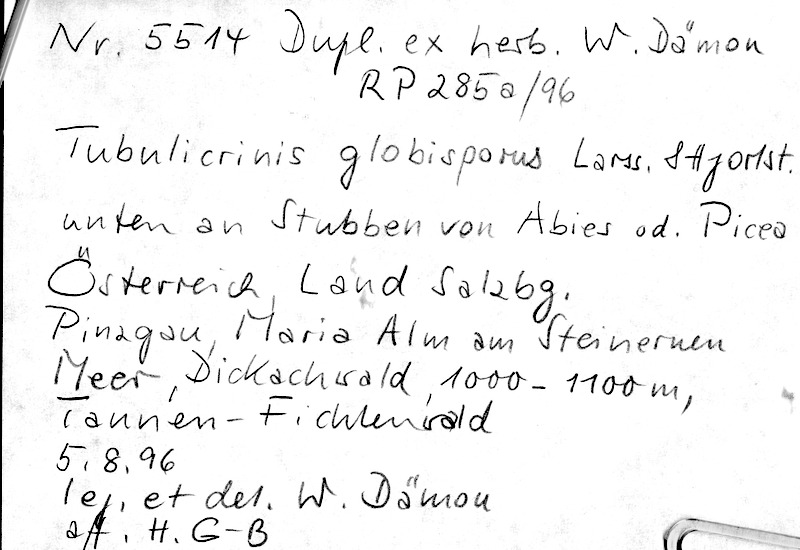 Nr. 5514 Dupl. ex herb. W. Dämon
RP 285a/96
Tubulicrinis globisporus Larss. & Hjortst.
unten an Stubben von Abies od. Picea
Österreich, Land Salzbg.
Pinzgau, Maria Alm am Steinernen
Meer, Dickachwald, 1000-1100m,
Tannen-Fichtenwald
5.8.96
leg. et det. W. Dämon
aff. H. G-B